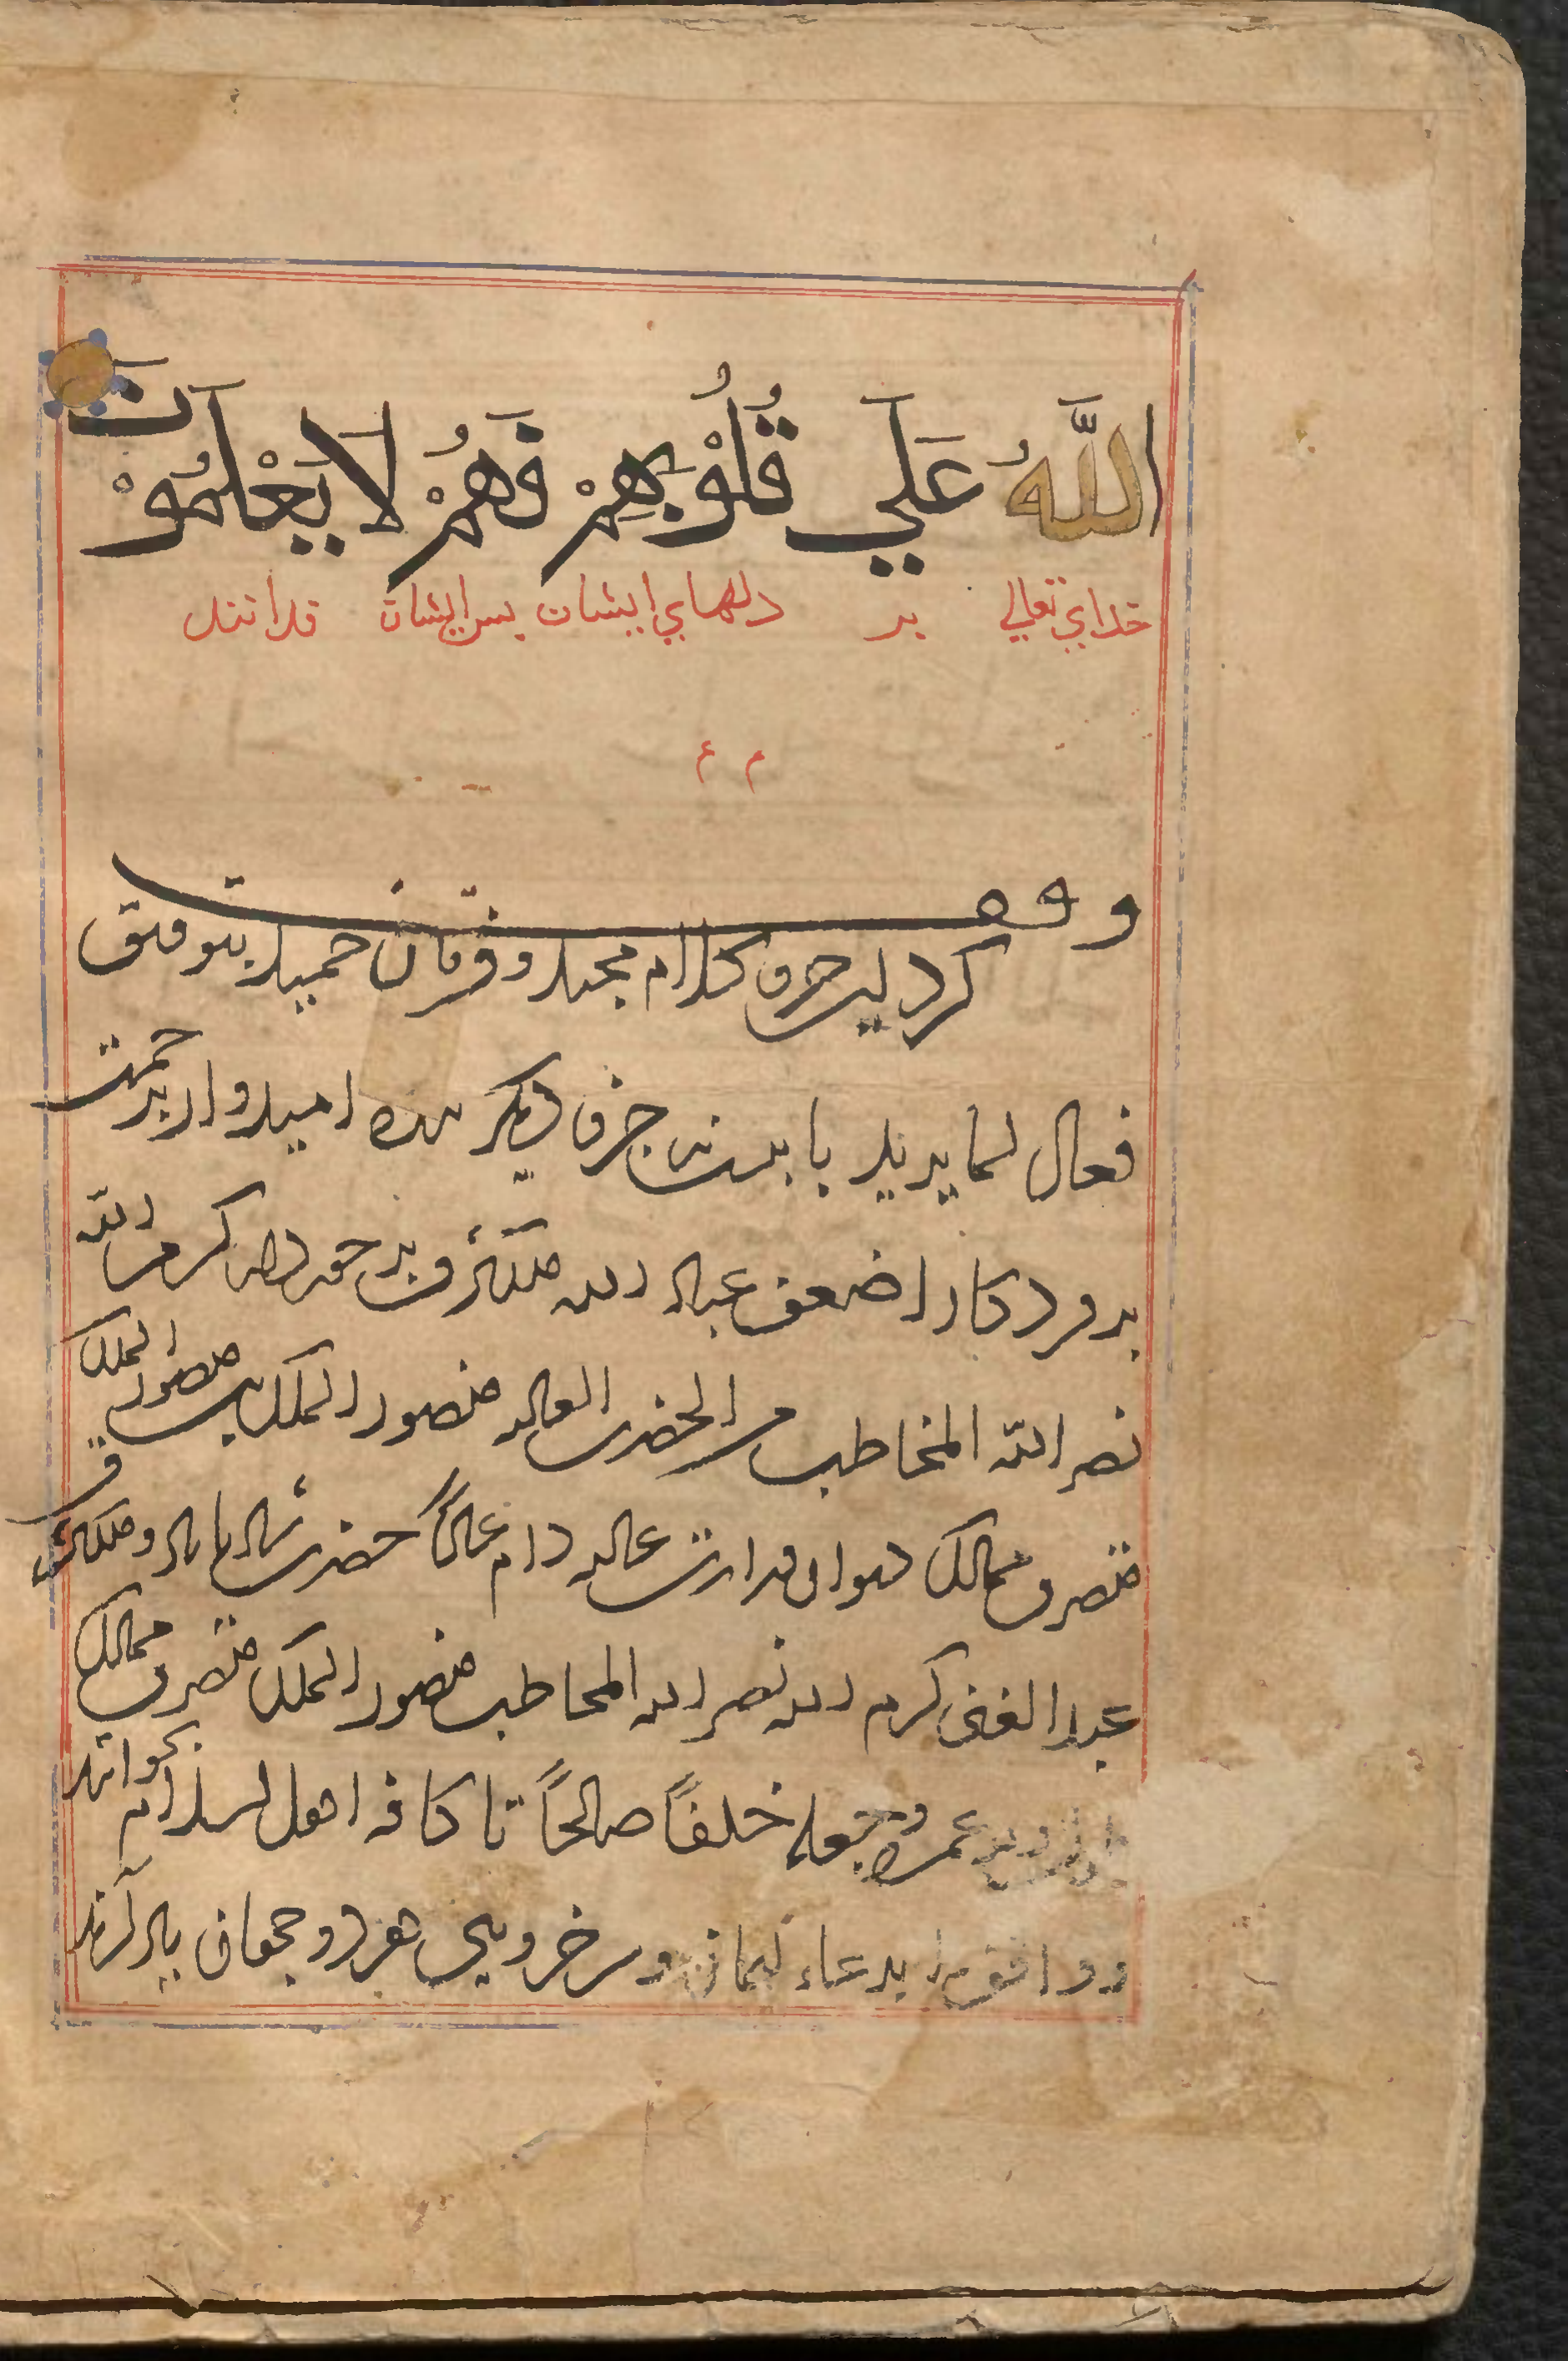 اللّٰهُ عَلَي قُلُوْبِهِمْ فَهُمْ لَا يَعْلَمُوْنَ
خداي تعالي بر دلهاي ايشان پس ايشان ندانند
م ع
وقف
كرد اين جزو كلام مجيد و فرقان حميد بتوفيق
فعال لما يريد با بيست نه جزو ديكر بنده اميدوار برحمت
پروردكار اضعف عباد الله كرم الله
نصر الله المخاطب من الحضرت العاليه منصور الملك بن منصور الملك
متصرف ممالك ديوان وزارت عاليه دام عاليًا حضرت
عبد الغنى كرم الله نصر الله المخاطب منصور الملك متصرف ممالك
عمره وجعله خلفًا صالحًا تا كافه اهل اسلام بخوانند
و واقف را بدعاء ايمان و سرخرويى هر دو جهان ياد آرند